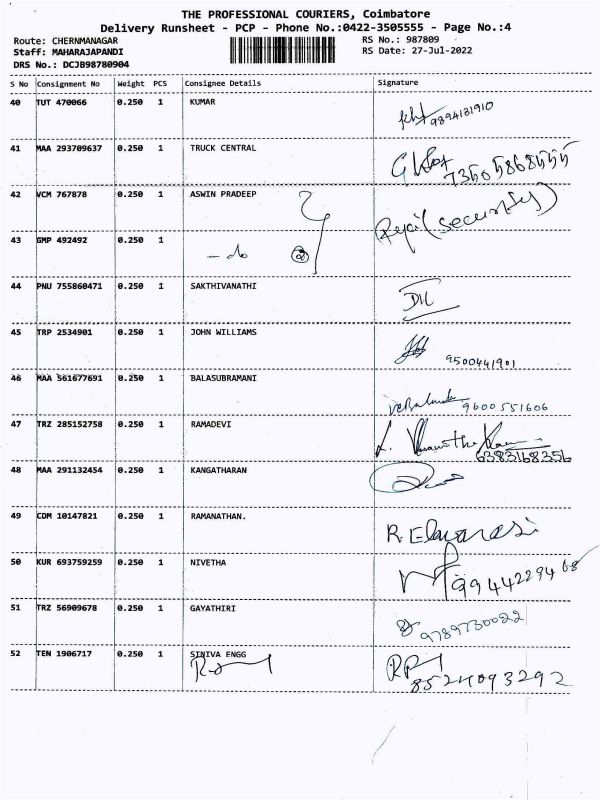 THE PROFESSIONAL COURIERS, Coimbatore
Delivery Runsheet - PCP - Phone No.:0422-3505555 - Page No.:4
Route: CHERNMANAGAR
RS No.: 987809
Staff: MAHARAJAPANDI
RS Date: 27-Jul-2022
DRS No.: DCJB98780904
S No Consignment No Weight PCS Consignee Details Signature
40 TUT 470066 0.250 1 KUMAR
9894131910
41 MAA 293709637 0.250 1 TRUCK CENTRAL
42 VCM 767878 0.250 1 ASWIN PRADEEP
(security)
43 GMP 492492 0.250 1
- do
44 PNU 755860471 0.250 1 SAKTHIVANATHI
45 TRP 2534901 0.250 1 JOHN WILLIAMS
9500441901
46 MAA 561677691 0.250 1 BALASUBRAMANI
9600551606
47 TRZ 285152758 0.250 1 RAMADEVI
6383168356
48 MAA 291132454 0.250 1 KANGATHARAN
49 CDM 10147821 0.250 1 RAMANATHAN.
R Elavarasi
50 KUR 693759259 0.250 1 NIVETHA
9944229468
51 TRZ 56909678 0.250 1 GAYATHIRI
9789730022
52 TEN 1906717 0.250 1 SINIVA ENGG
8524093292